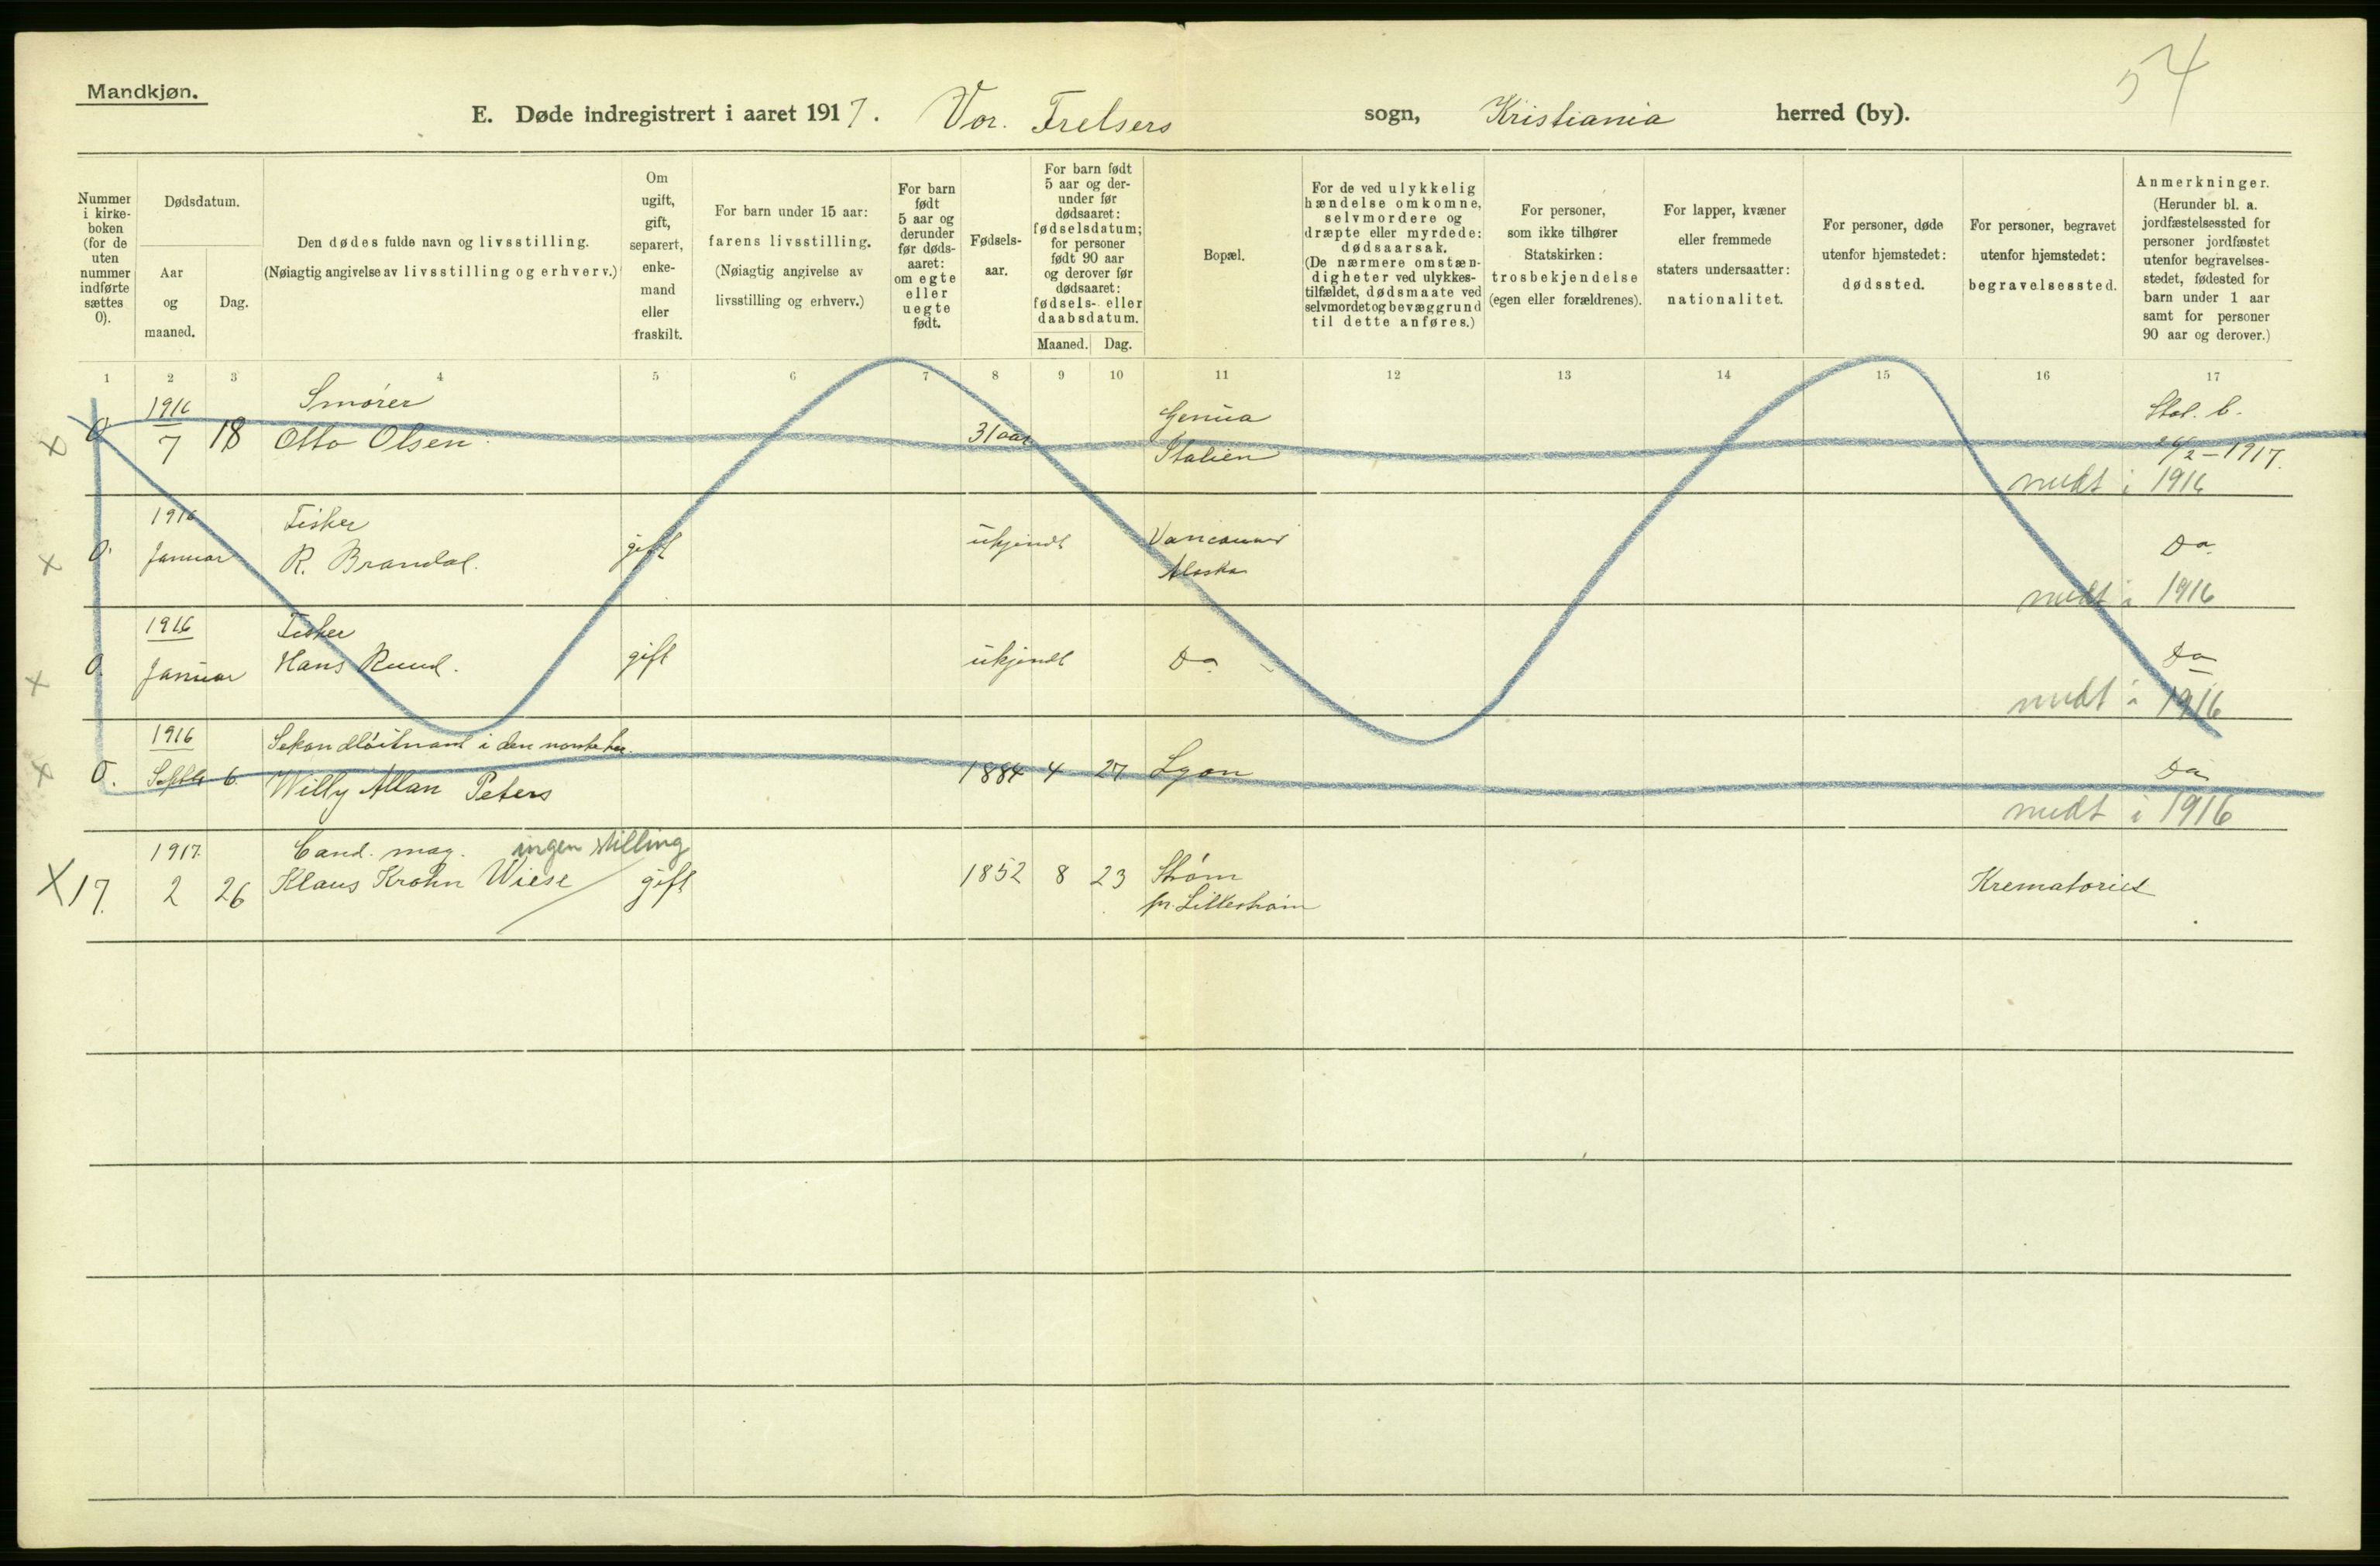 54
Mandkjøn.
E. Døde indregistrert i aaret 1917. Vor. Frelsers sogn, Kristiania herred (by).
Nummer i kirke- boken (for de uten nummer indførte sættes 0).
Dødsdatum.
Aar og maaned.
Dag.
Den dødes fulde navn og livsstilling.
(Nøiagtig angivelse av livsstilling og erhverv.)
Om ugift, gift, separert, enke- mand eller fraskilt.
For barn under 15 aar: farens livsstilling. (Nøiagtig angivelse av livsstilling og erhverv.)
For barn født 5 aar og derunder før døds- aaret: om egte eller uegte født.
Fødsels- aar.
For barn født 5 aar og der- under før dødsaaret: fødselsdatum; for personer født 90 aar og derover før dødsaaret: fødsels- eller daabsdatum.
Maaned. Dag.
Bopæl.
For de ved ulykkelig hændelse omkomne, selvmordere og dræpte eller myrdede: dødsaarsak. (De nærmere omstæn- digheter ved ulykkes- tilfældet, dødsmaate ved selvmordet og bevæggrund til dette anføres.)
For personer, som ikke tilhører Statskirken: trosbekjendelse (egen eller forældrenes).
For lapper, kvæner eller fremmede staters undersaatter: nationalitet.
For personer, døde utenfor hjemstedet: dødssted.
For personer, begravet utenfor hjemstedet: begravelsessted.
Anmerkninger. (Herunder bl. a. jordfæstelsessted for personer jordfæstet utenfor begravelses- stedet, fødested for barn under 1 aar samt for personer 90 aar og derover.)
1 2 3 4 5 6 7 8 9 10 11 12 13 14 15 16 17
1916 Smører Genua Stat. b.
x 0 7 18 Otto Olsen 31 aar Italien 1917.
medt i 1916
1916 Fisker Vancouver
x 0 Januar R. Brandal. gift ukjendt Alaska Do
medt i 1916
1916 Fisker
x 0 Januar Hans Ruud. gift ukjendt Do Do
medt i 1916
1916 Sekondløitnant i den norske hær.
x 0. Septb 6 Willy Allan Peters 1884 4 27 Lyon Do
medt i 1916
1917. Cand. mag. ingen stilling
X 17. 2 26 Klaus Krohn Wiese gift 1852 8 23 Strøm Krematoriet
pr. Lillestrøm